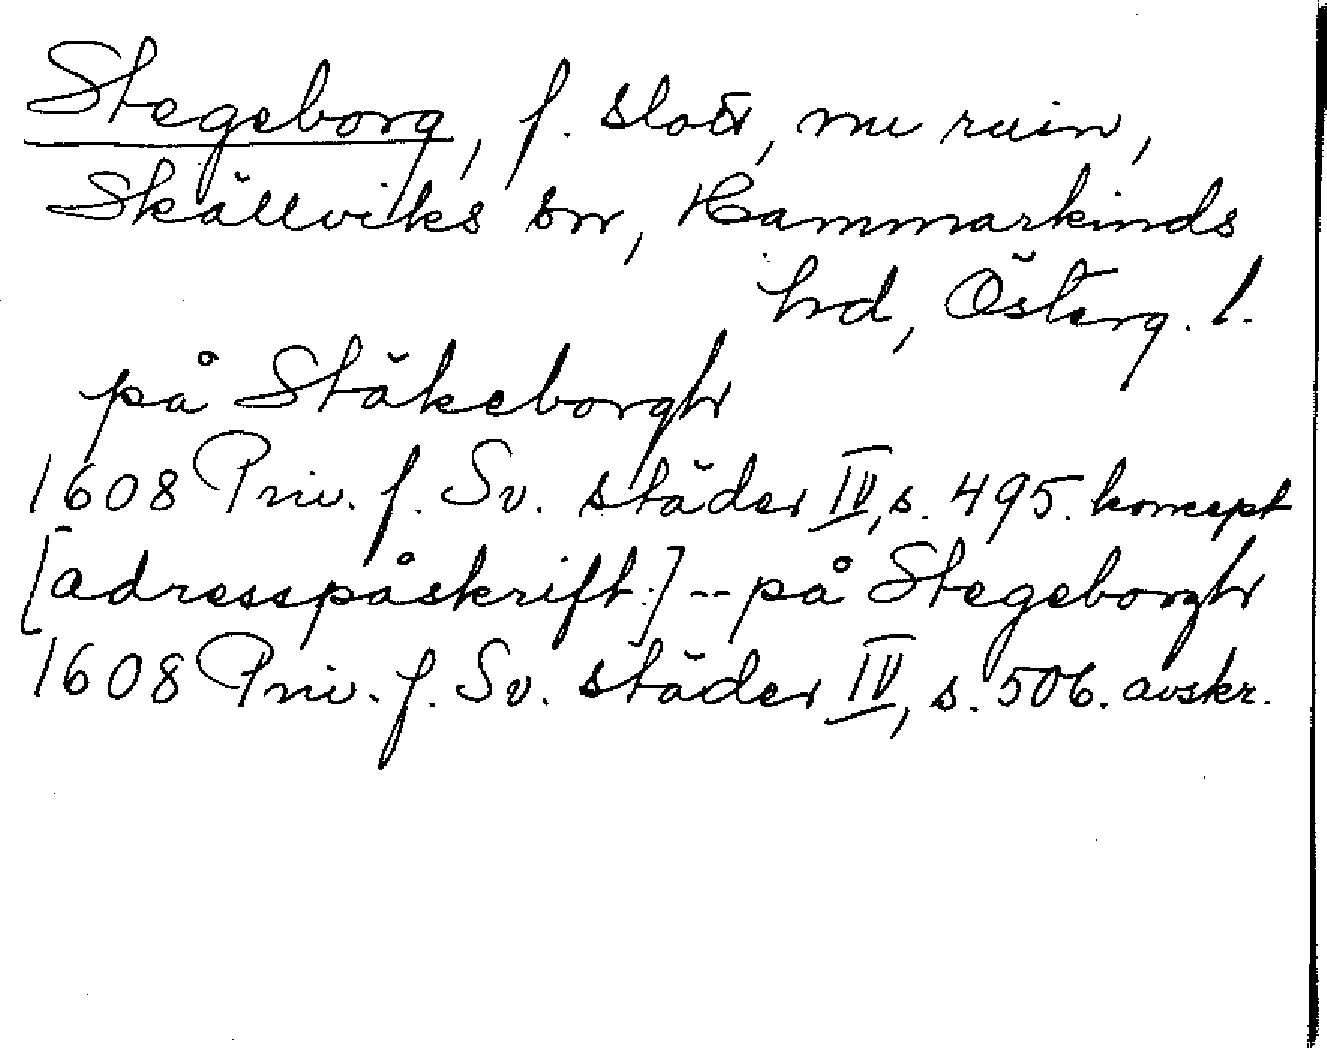 Stegeborg, f. slott, nu ruin,
Skällviks sn, Hammarkinds
hd, Österg. l.
på Stäkeborgh
1608 Priv. f. Sv. städer IV, s. 495. koncept
[adresspåskrift:] -- på Stegeborgh
1608 Priv. f. Sv. städer IV, s. 506. avskr.